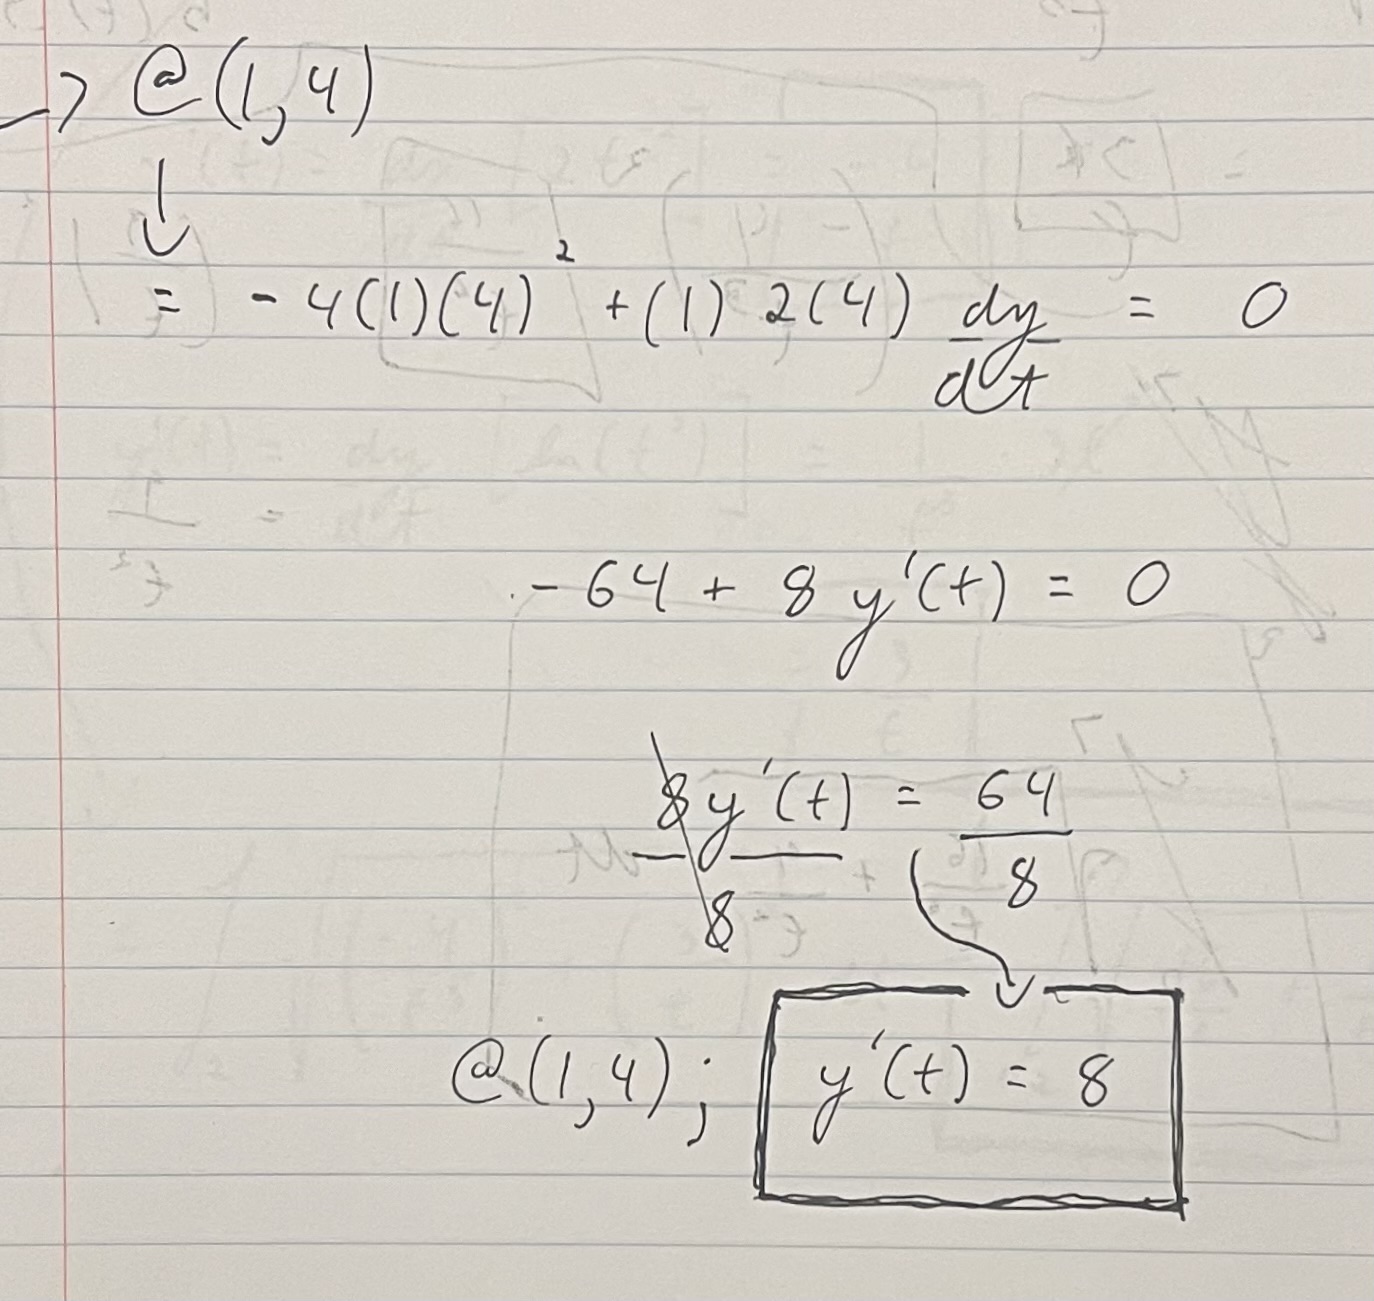 → @ (1,4)
↓
= - 4(1)(4)² + (1) 2(4) dy/dt = 0
-64 + 8 y'(t) = 0
8y'(t)/8 = 64/8
@ (1,4); y'(t) = 8